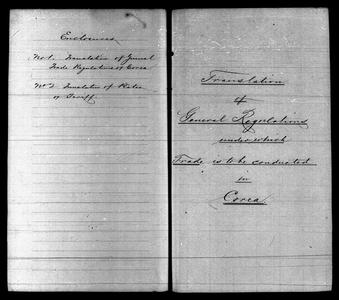 Enclosures
No 1. Translation of General
Trade Regulations of Corea
No 2 Translation of Rates
of Tariff
Translation
of
General Regulations
under which
Trade is to be conducted
in
Corea